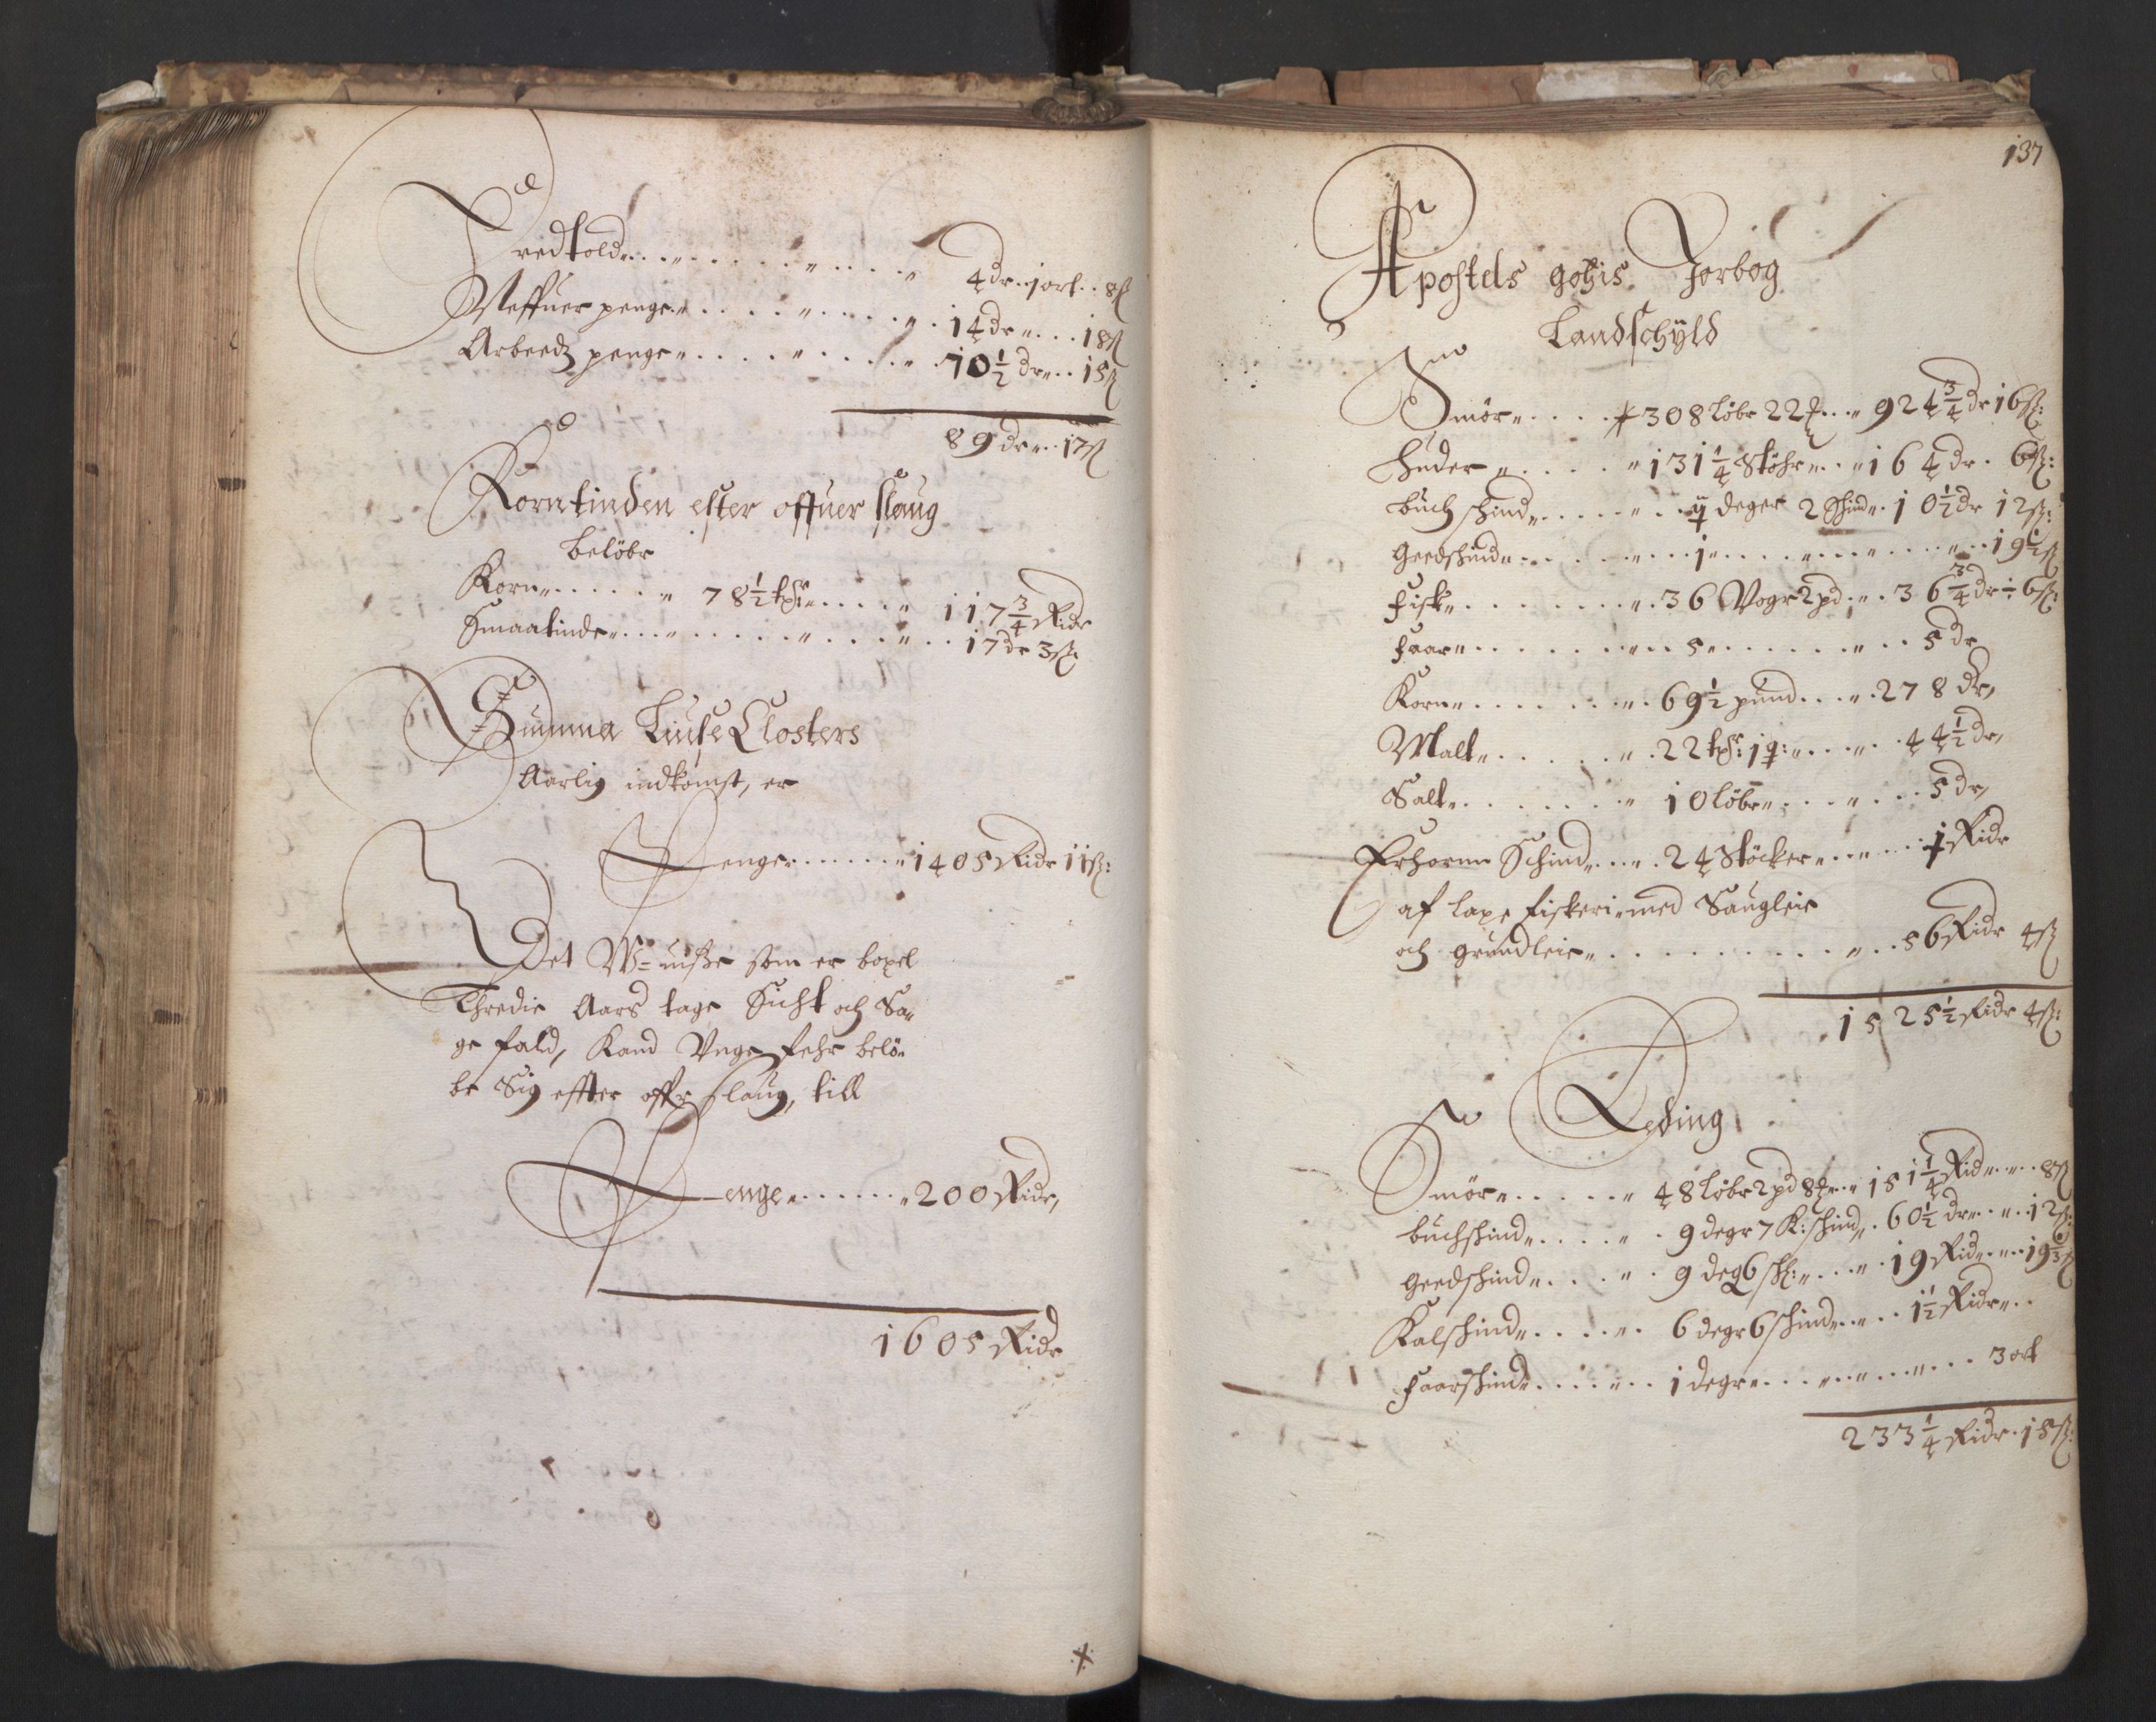 Tredtold 4 dr 1 ort 8 ß
Neffuer penge 14 dr 18 ß
Arbeedtz penge 10½ dr 15 ß
89 dr 17 ß
Korntinden efter offuer slaug
belöbr
Korn 78½ tpſr 117¾ Ridr
Smaatinde 17 dr 3 ß
Summa Liuse Closters
Aarlig indkomst, er
Penger 1405 Ridr 11 ß:
Det W=uisse som er boxel
Thredie Aars tage Sicht och Sa=
ge fald, Kand Vngefehr belö=
be Sig effter offr slaug, till
Penge 200 Ridr,
1605 Ridr
137
Apostels gotzis Jorbog
Landschyld
Smör 308 löbr 22 924¾ dr 16 ß:
Huder 131¼ Stöhr 164 dr. 6 ß:
buch schind deger 2 Schind 10½ dr 12 ß:
Geedschind 1 19½ ß
Fisk 36 Vogr 2 pd 36¾ dr ÷ 6 ß:
Faar 5 5 dr
Korn 69½ pund 278 dr,
Malt 22 tpſr: 1 q: 44½ dr,
Salt 10 löbr 5 dr,
Erhorne Schind 24 Stöcker 1 Ridr
af laxe fiskeri med Saugleie
och grundleie 56 Ridr 4 ß
1525½ Ridr 4 ß:
Leding
Smör 48 löbr 2 pd 8 151¼ Rid 8 ß
buchschind 9 degr 7 K: schind 60½ dr 12 ß:
Geedschind 9 deg 6 sch: 19 Rid 19 ß
Kalschind 6 degr 6 schind 1½ Ridr
Faarschind 1 degr 3 ort
233¼ Ridr 15 ß: